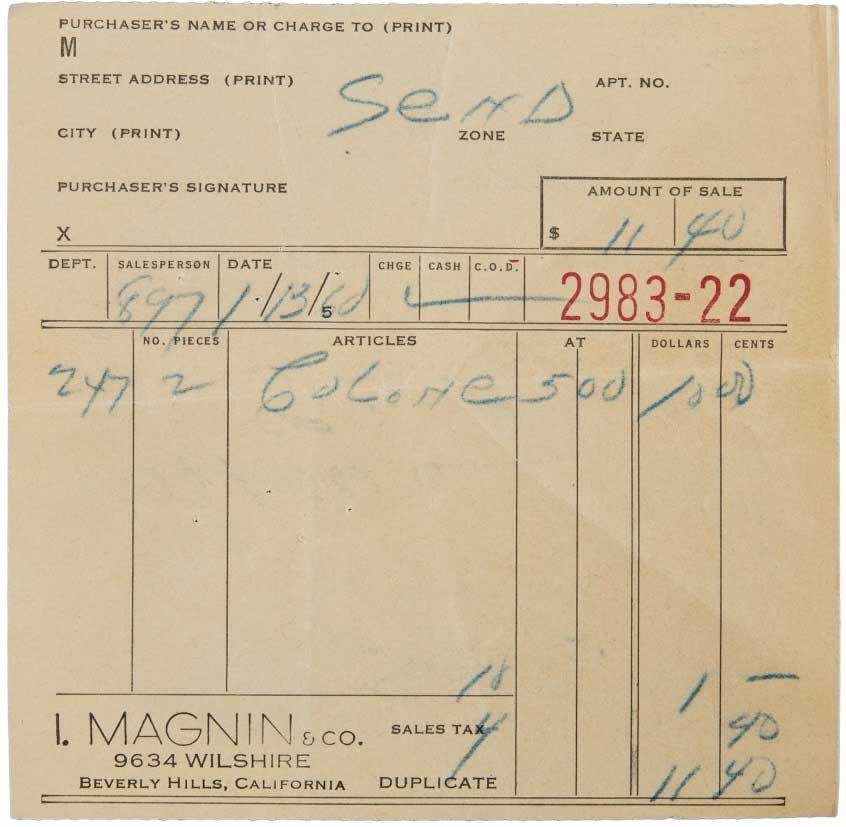 PURCHASER'S NAME OR CHARGE TO (PRINT)
M
STREET ADDRESS (PRINT) SEND APT. NO.
CITY (PRINT) ZONE STATE
PURCHASER'S SIGNATURE AMOUNT OF SALE
X $ 11 40
DEPT. SALESPERSON DATE CHGE CASH C.O.D.
897 1/13/60 5 2983-22
NO. PIECES ARTICLES AT DOLLARS CENTS
247 2 COLONE 5 00 10 00
10 1 —
I. MAGNIN & CO. SALES TAX 4 40
9634 WILSHIRE
BEVERLY HILLS, CALIFORNIA DUPLICATE 11 40